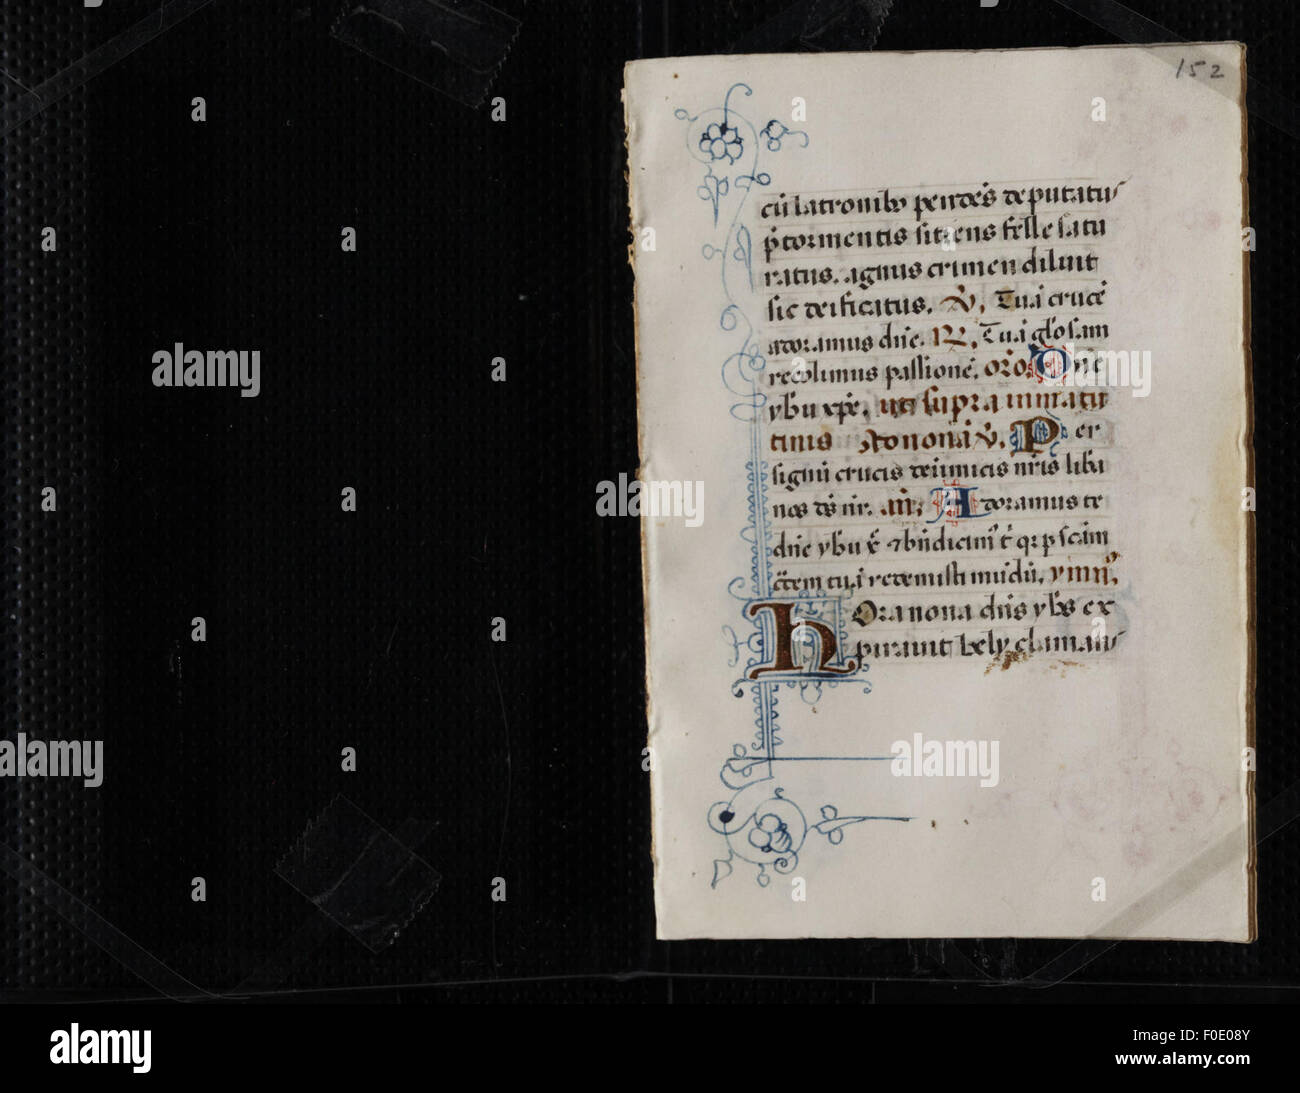 152
cū latronibȝ pendēs deputatus
p̄ tormentis sitiens felle satu
ratus. agnus crimen diluit
sic deificatus. V̄. Tuā crucē
adoramus dñe. R̄. Tuā gl̓osam
recolimus passionē. or̄o. Dñe
yh̄u xp̄e. ut supra in matu
tinis Ad nonā V̄. Per
signū crucis de inimicis nr̄is liba
nos ds̄ nr̄. añ. Adoramus te
dñe yh̄u x̄ & bn̄dicim̉ t̄ qr̄ p scām
c̄cem tuā redemisti mūdū. ymn̉.
Hora nona dñs yh̄s ex
piravit hely clamans
alamy
Image ID: F0E08Y
www.alamy.com